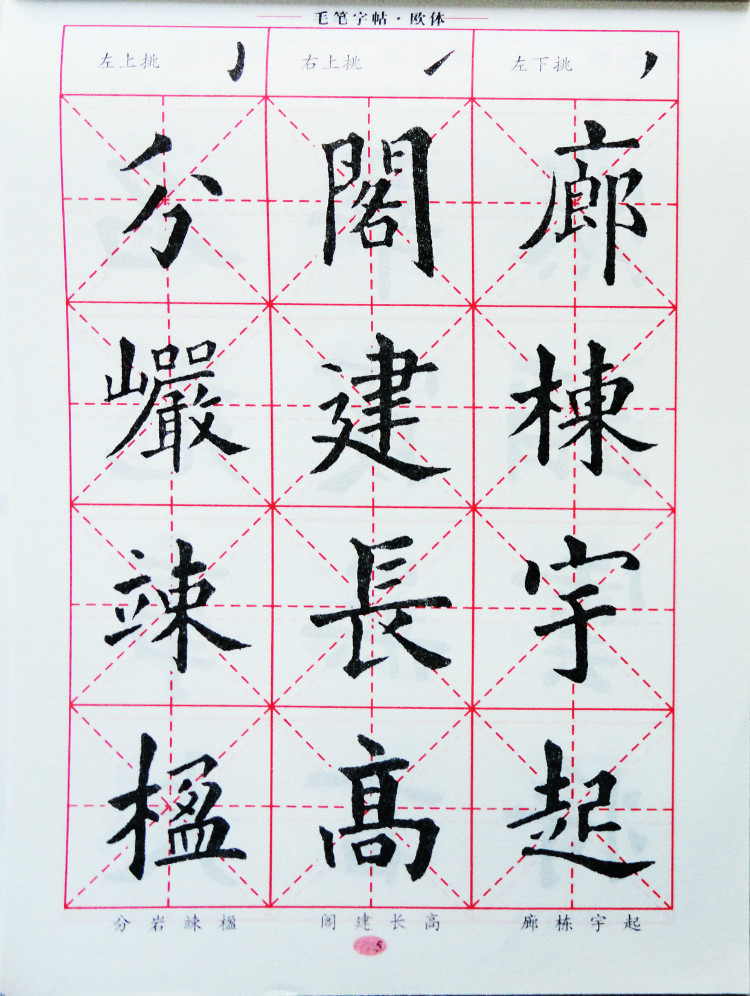 毛笔字帖·欧体
左上挑 右上挑 左下挑
分 閣 廊
巗 建 棟
竦 長 宇
楹 高 起
分岩竦楹 阁建长高 廊栋宇起
5